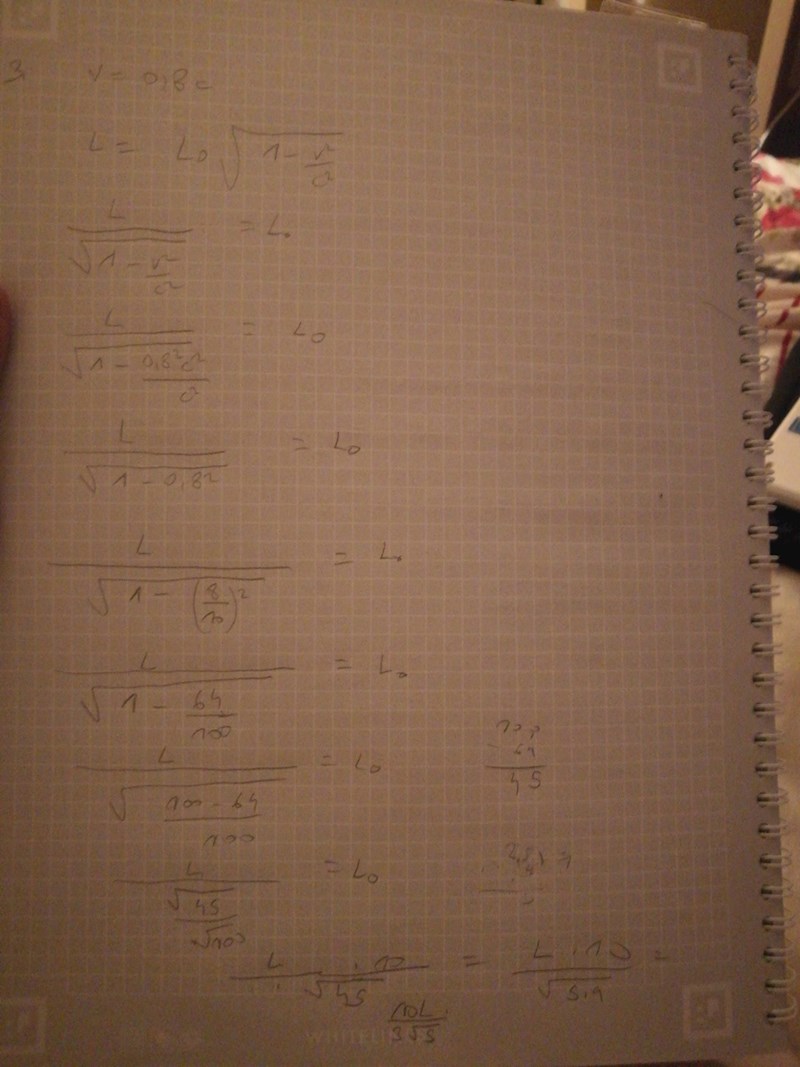 3. v = 0,8c
L = L₀ √(1 - v²/c²)
L / √(1 - v²/c²) = L₀
L / √(1 - 0,8²c²/c²) = L₀
L / √(1 - 0,8²) = L₀
L / √(1 - (8/10)²) = L₀
L / √(1 - 64/100) = L₀
L / √((100 - 64)/100) = L₀
100
- 64
45
L / (√45/√100) = L₀
L · 10 / √45 = L · 10 / √5·9 =
10L / 3√5
WHITELINES